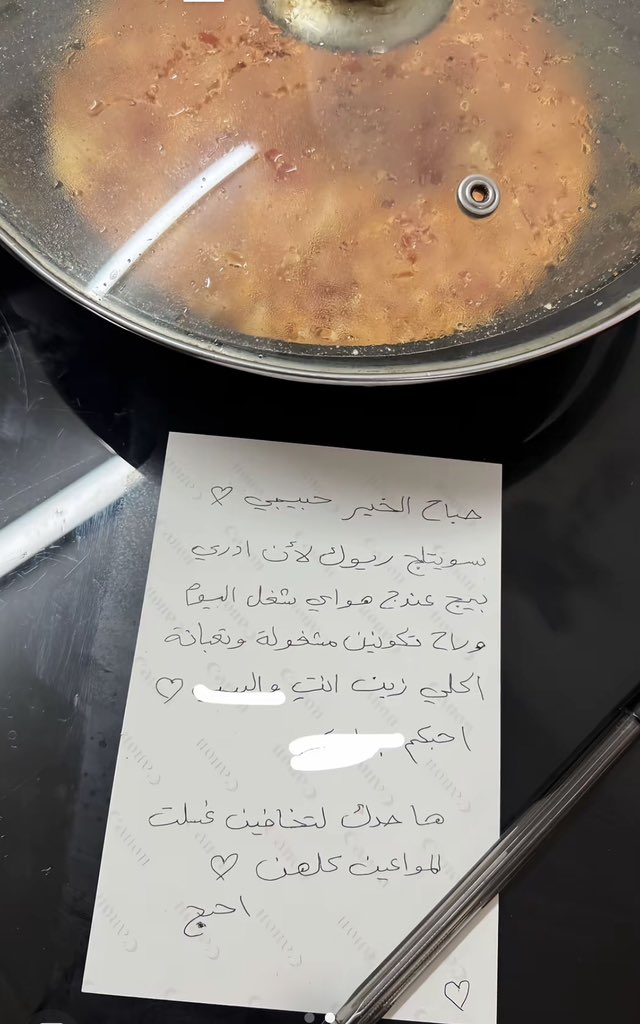 صباح الخير حبيبي ♡
سويتلج ريوك لأن ادري
بيج عندج هواي شغل اليوم
وراح تكونين مشغولة وتعبانة
اكلي زين انتي ♡
احبكم
ها حدك لتخافين غسلت
المواعين كلهن ♡
احبج
♡
Canon